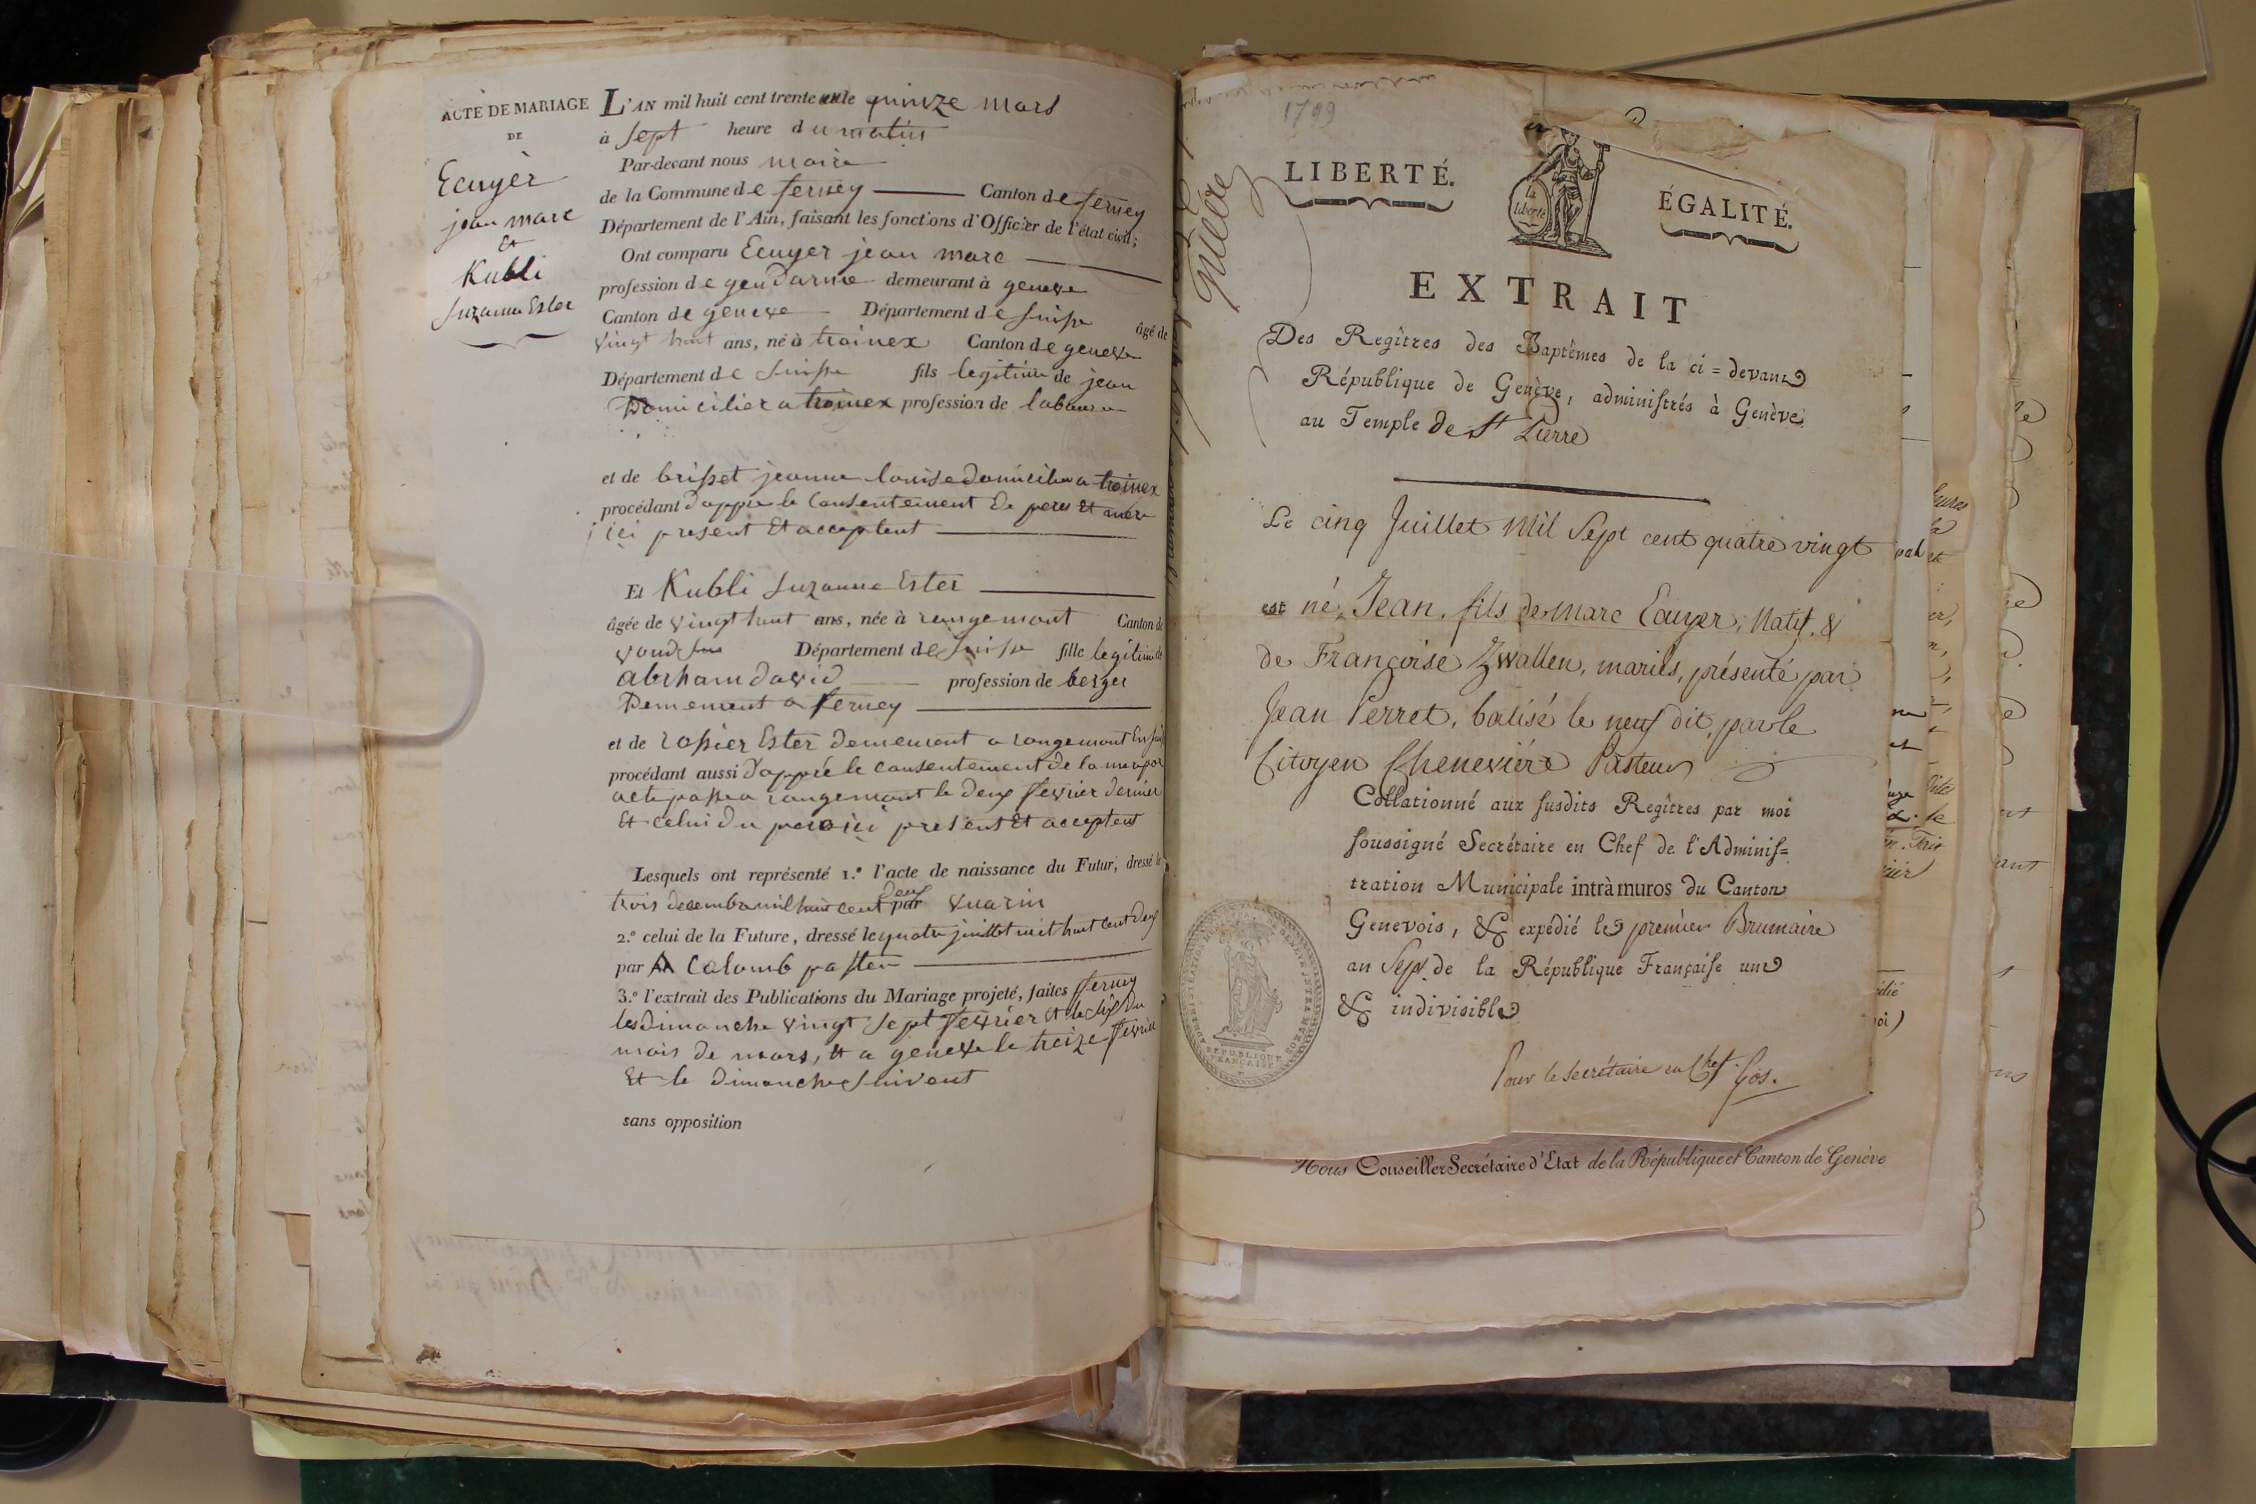 ACTE DE MARIAGE
DE
Ecuyer
jean marc
et
Kubli
Suzanne Ester
L'AN mil huit cent trente un le quinze mars
à sept heure du matin
Par-devant nous maire
de la Commune de ferney Canton de ferney
Département de l'Ain, faisant les fonctions d'Officier de l'état civil;
Ont comparu Ecuyer jean marc
profession de gendarme demeurant à geneve
Canton de geneve Département de Suisse âgé de
vingt huit ans, né à troinex Canton de geneve
Département de Suisse fils legitime de jean
Domicilier a troinex profession de laboureur
et de brisset jeanne louise domicilier a troinex
procédant d'apprè le consentement de peres et mere
ici present et acceptent
Et Kubli Suzanne Ester
âgée de vingt huit ans, née à rougemont Canton de
Département de Suisse fille legitime de
abrham david profession de berger
Demement a ferney
et de rossier Ester demement a rougemont en
procédant aussi d'apprè le consentement de la mere par
acte passe a rougemont le deux fevrier dernier
et celui du pere ici present et acceptent
Lesquels ont représenté 1.° l'acte de naissance du Futur, dressé le
trois decembre mil huit cent deux par vuarin
2.° celui de la Future, dressé le quatre juillet mil huit cent deux
par Colomb paster
3.° l'extrait des Publications du Mariage projeté, faites ferney
les dimanche vingt sept fevrier et le six du
mois de mars, et a geneve le treize fevrier
et le dimanche suivent
sans opposition
1799
LIBERTÉ.
la liberté
ÉGALITÉ.
EXTRAIT
Des Regîtres des Baptêmes de la ci=devant
République de Genève, administrés à Genève
au Temple de St Pierre
Le cinq Juillet Mil Sept cent quatre vingt
est né, Jean, fils de Marc Ecuyer, Natif, &
de Françoise Zwallen, mariés, présenté par
Jean Perret, batisé le neuf dit, par le
Citoyen Chenevière Pasteur
Collationné aux susdits Regîtres par moi
soussigné Secrétaire en Chef de l'Adminis=
tration Municipale intrà muros du Canton
Genevois, & expédié le premier Brumaire
an Sept de la République Française une
& indivisible
Pour le secrétaire en Chef Gos.
RÉPUBLIQUE
FRANÇAISE
Nous Conseiller Secrétaire d'Etat de la République et Canton de Genève